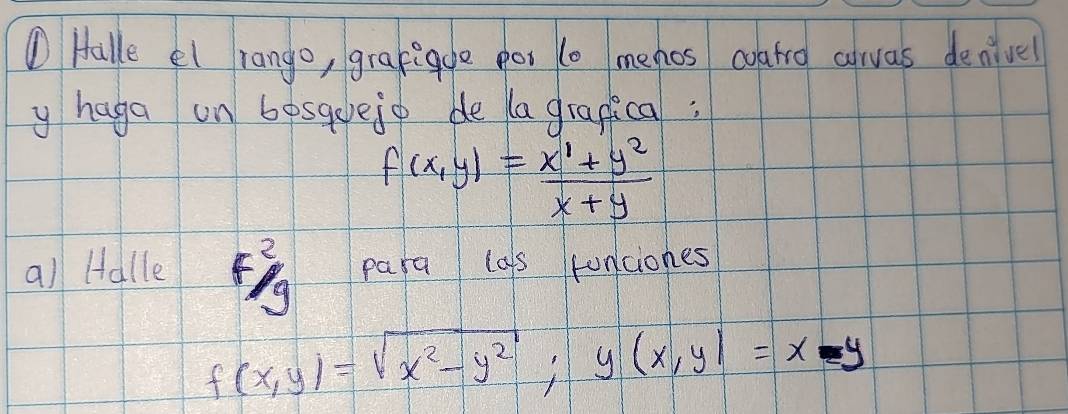 ① Halle el rango, grafique por lo menos cuatro curvas de nivel
y haga un bosquejo de la grafica :
f(x,y) = x¹ + y² / x + y
a) Halle F²/g para las funciones
f(x,y) = √x² - y² ; y(x,y) = x - y